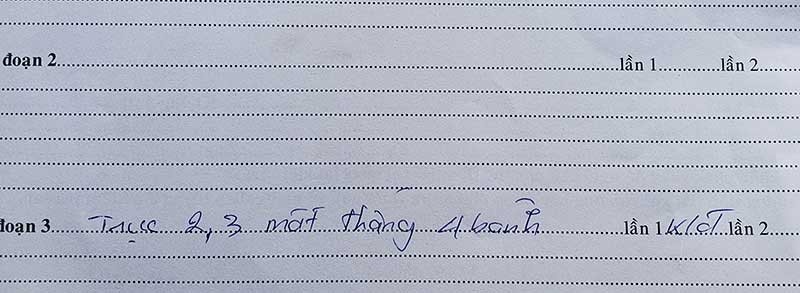 đoạn 2 lần 1 lần 2
đoạn 3 Trục 2, 3 mất thắng 4 banh lần 1 K/đT lần 2